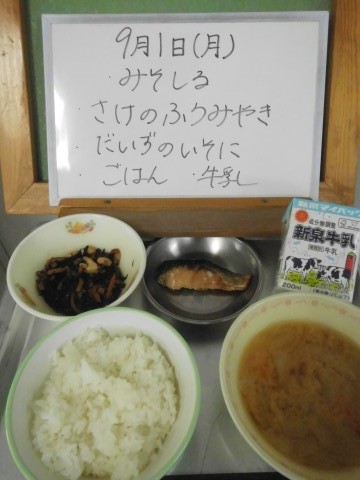 9月1日(月)
・みそしる
・さけのふりみやき
・だいずのいそに
・ごはん ・牛乳
新泉牛乳
200ml